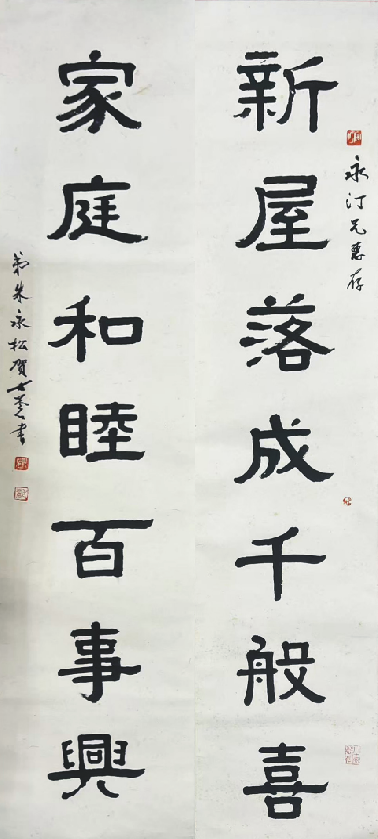 永汀兄惠存
新屋落成千般喜
家庭和睦百事興
弟朱永松賀